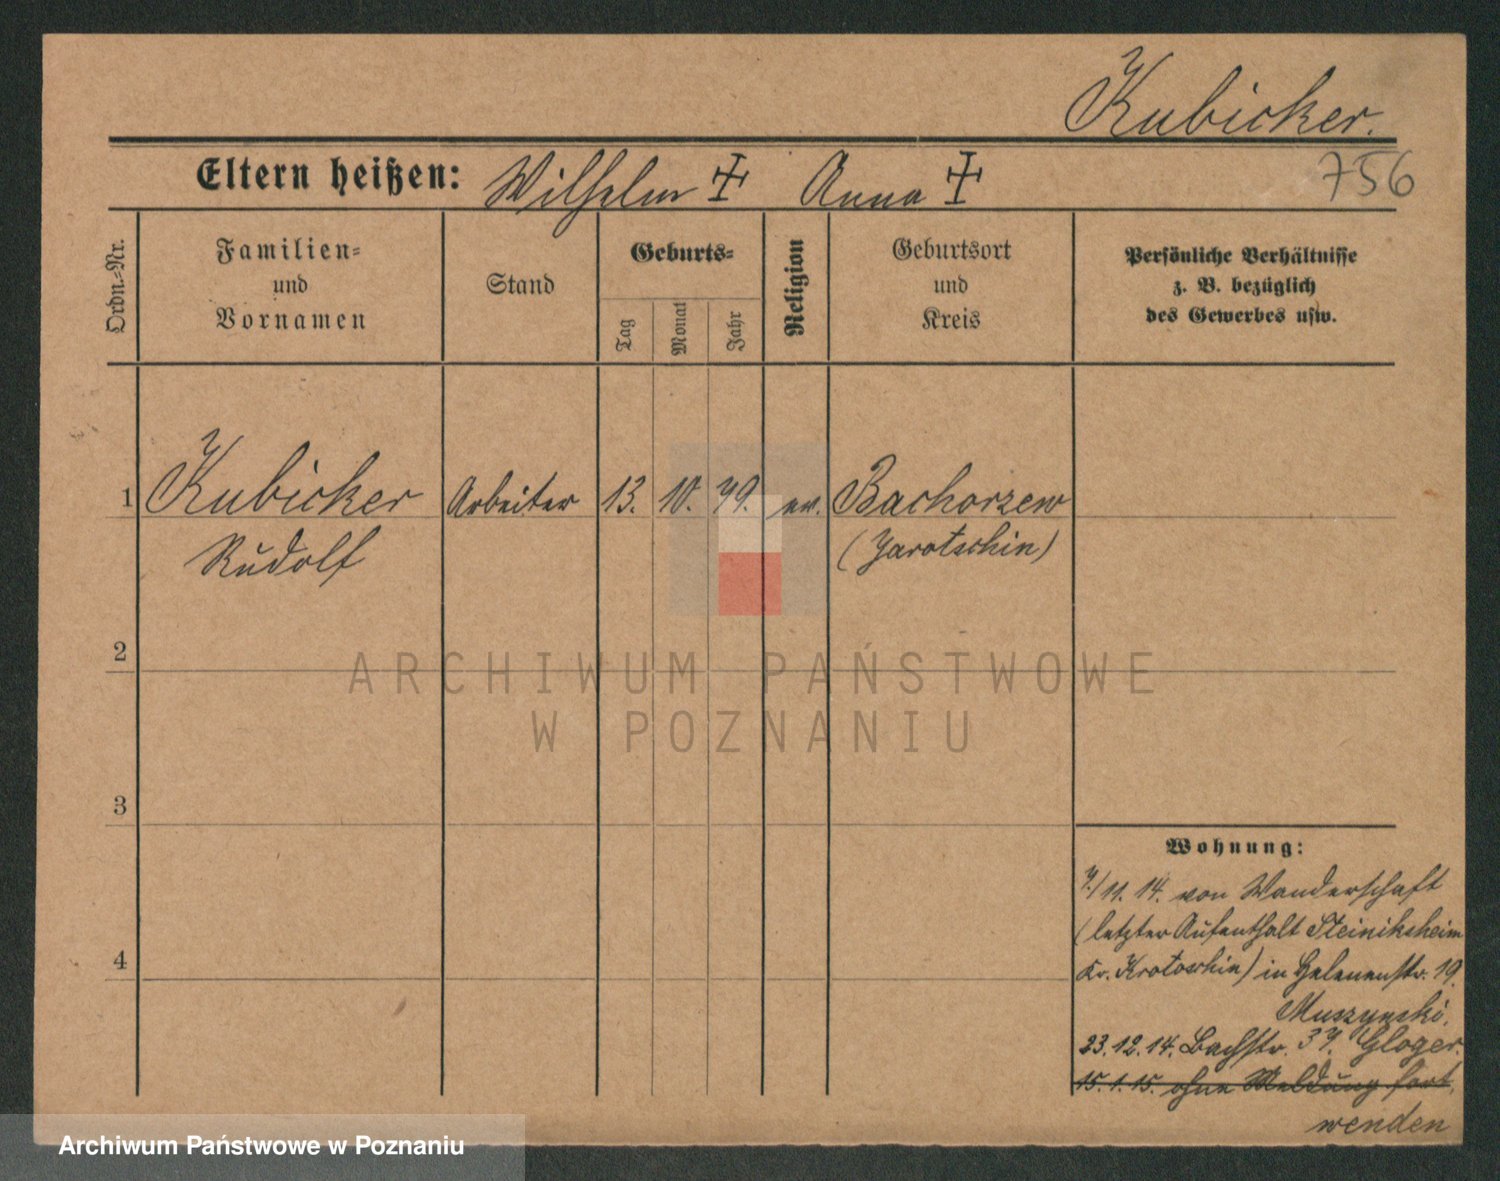 Kubicker.
Eltern heißen: Wilhelm Anna
756
Ordn.-Nr.
Familien-
und
Vornamen
Stand
Geburts-
Tag
Monat
Jahr
Religion
Geburtsort
und
Kreis
Persönliche Verhältnisse
z. B. bezüglich
des Gewerbes usw.
1 Kubicker Arbeiter 13. 10. 79. ev. Bachorzew
Rudolf (Jarotschin)
2
3
4
Wohnung:
7./11. 14. von Wanderschaft
(letzter Aufenthalt Steiniksheim
Kr. Krotoschin) in Helenenstr. 19.
Muszynski.
23.12.14. Bachstr. 37. Gloger.
15.1.15. ohne Meldung fort.
wenden
ARCHIWUM PAŃSTWOWE
W POZNANIU
Archiwum Państwowe w Poznaniu